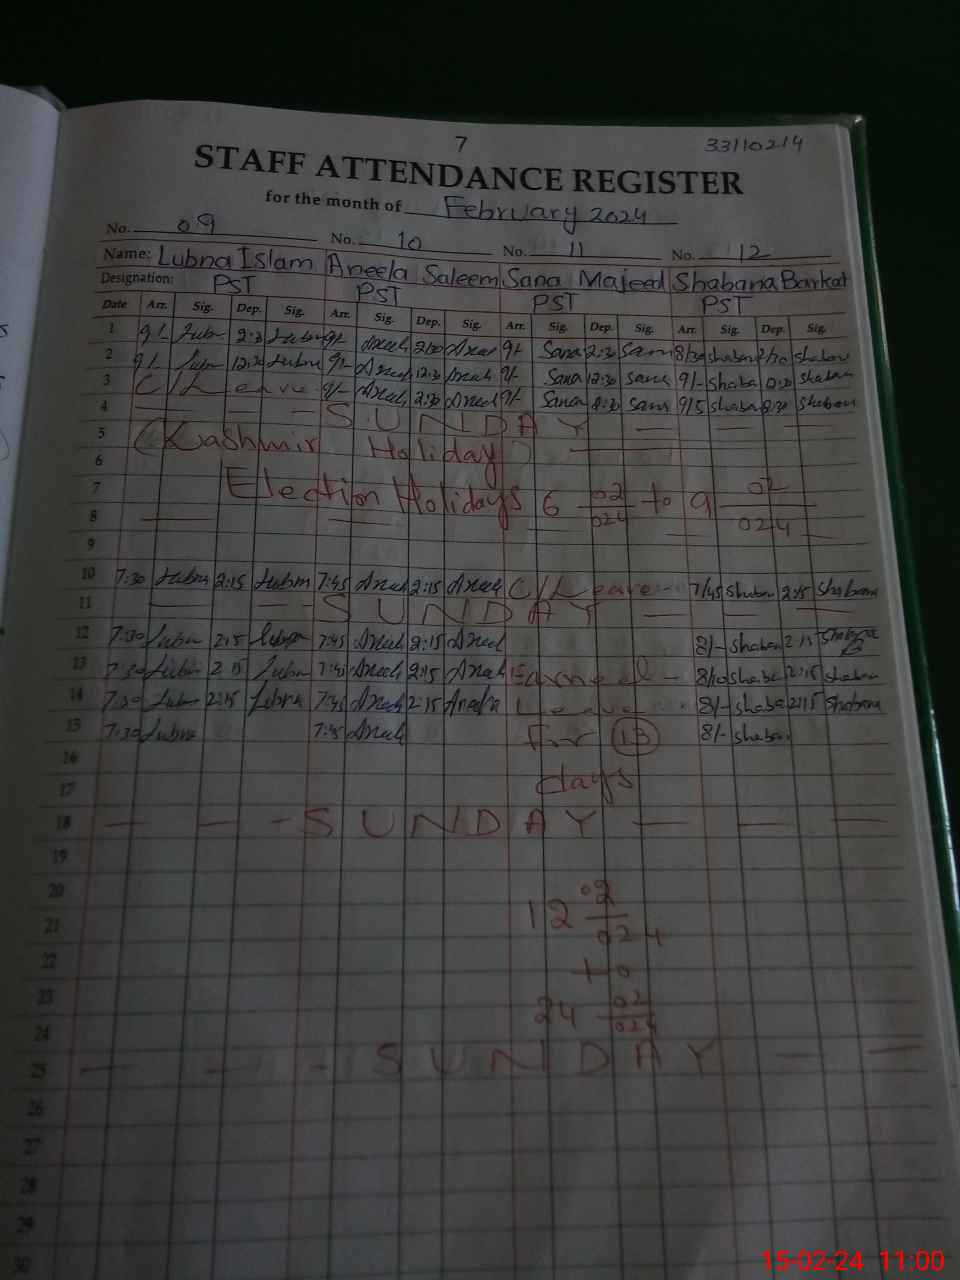 7
33110214
STAFF ATTENDANCE REGISTER
for the month of February 2024
No. 09 No. 10 No. 11 No. 12
Name: Lubna Islam Aneela Saleem Sana Majeed Shabana Barkat
Designation: PST PST PST PST
Date Arr. Sig. Dep. Sig. Arr. Sig. Dep. Sig. Arr. Sig. Dep. Sig. Arr. Sig. Dep. Sig.
1 9/- Lubn 2:30 Lubn 9/- Aneel 2:30 Aneel 9/- Sana 2:30 Sana 8/30 Shaban 2/30 Shaban
2 9/- Lubn 12:30 Lubn 9/- Aneel 12:30 Aneel 9/- Sana 12:30 Sana 9/- Shaba 12:30 Shaban
3 C/Leave 9/- Aneel 2:30 Aneel 9/- Sana 2:30 Sana 9/5 Shaba 2:30 Shaban
4 SUNDAY
5 (Kashmir Holiday)
6
7 Election Holidays 6 02/024 to 9 02/024
8
9
10 7:30 Lubna 2:15 Lubna 7:45 Aneel 2:15 Aneel C/Leave 7/45 Shaban 2:15 Shabana
11 SUNDAY
12 7:30 Lubn 2:15 Lubna 7:45 Aneel 2:15 Aneel 8/- Shaban 2:15 Shabana
13 7:30 Lubn 2:15 Lubn 7:45 Aneel 2:15 Aneel Earned 8/10 Shaba 2:15 Shaban
14 7:30 Lubn 2:15 Lubna 7:45 Aneel 2:15 Aneela Leave 8/- Shaba 2:15 Shabana
15 7:30 Lubna 7:45 Aneel for 13 8/- Shaban
16
17 days
18 SUNDAY
19
20
21 12 02/024
22 to
23
24 24 02/024
25 SUNDAY
26
27
28
29
30
15-02-24 11:00